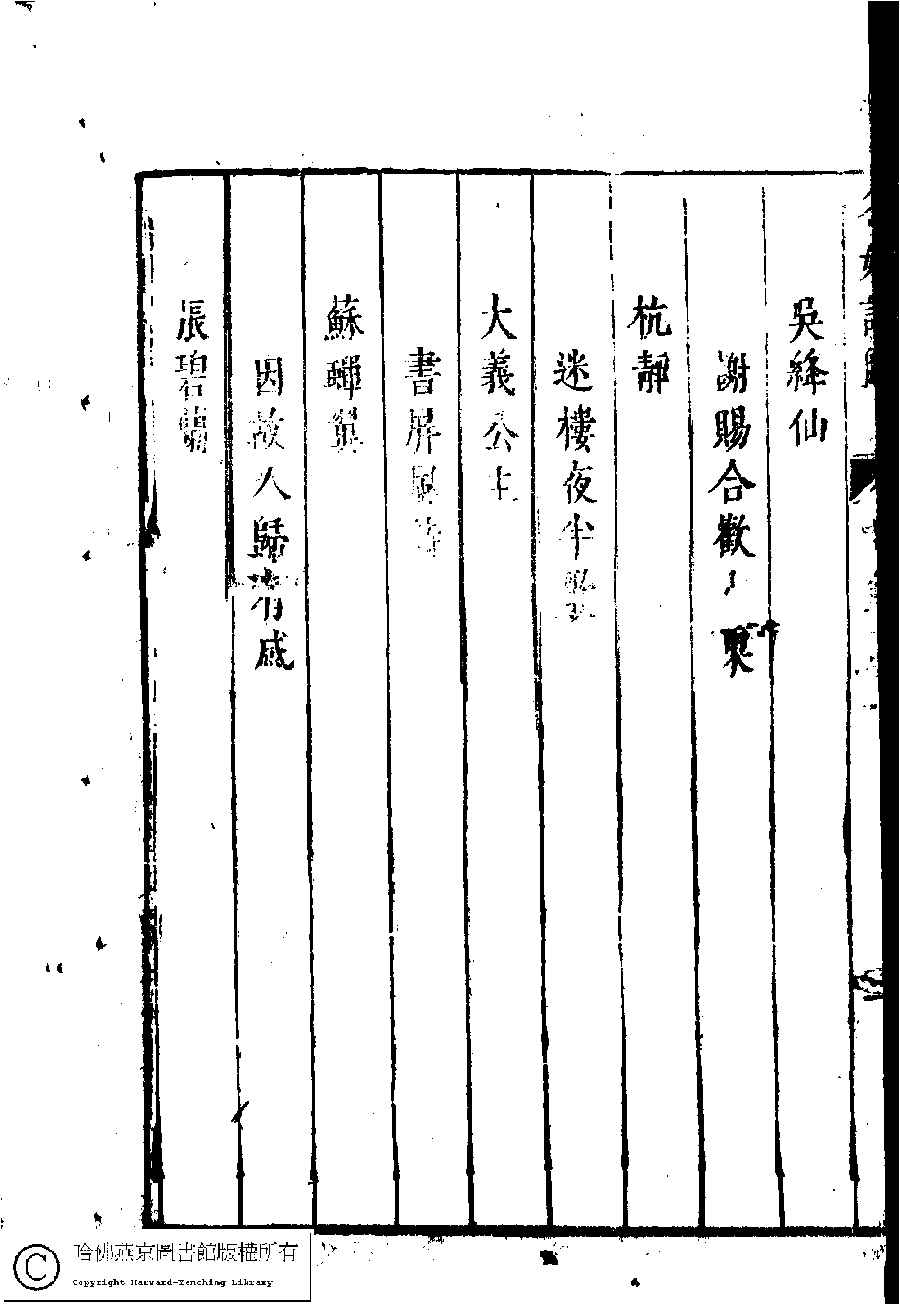 吳絳仙
謝賜合歡水果
杭靜
迷樓夜半歌
大義公主
書屏風詩
蘇蟬翼
因故人歸有感
張碧蘭
哈佛燕京圖書館版權所有
Copyright Harvard-Yenching Library